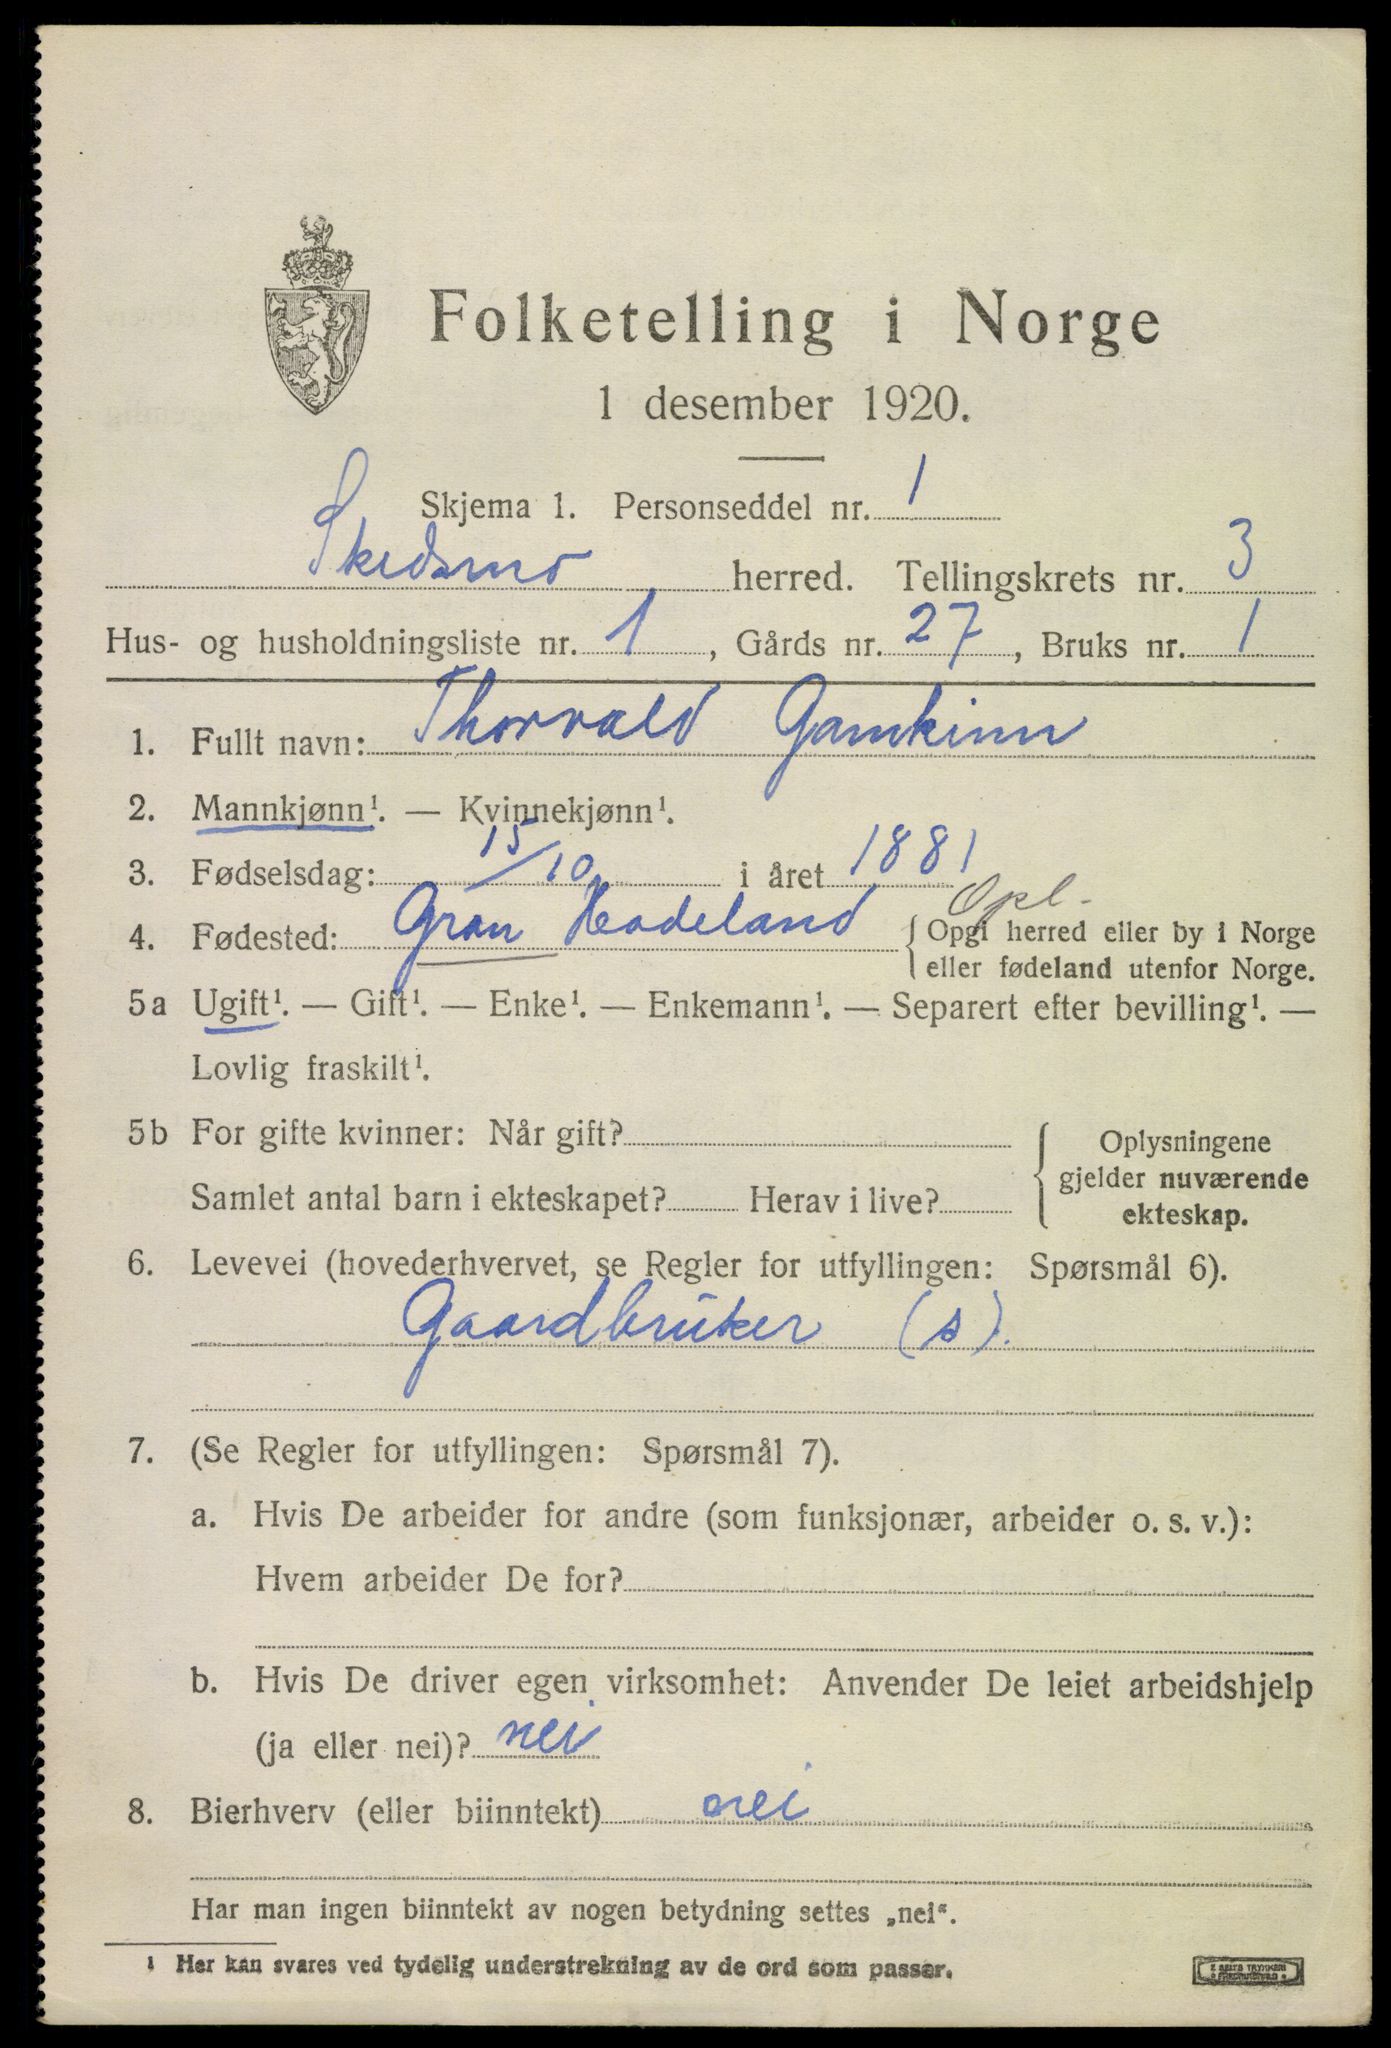 Folketelling i Norge
1 desember 1920.
Skjema 1. Personseddel nr. 1
Skedsmo herred. Tellingskrets nr. 3
Hus- og husholdningsliste nr. 1, Gårds nr. 27, Bruks nr. 1
1. Fullt navn: Thorvald Gamkinn
2. Mannkjønn¹. — Kvinnekjønn¹.
3. Fødselsdag: 15/10 i året 1881
Opl-
4. Fødested: Gran Hadeland { Opgi herred eller by i Norge
eller fødeland utenfor Norge.
5a Ugift¹. — Gift¹. — Enke¹. — Enkemann¹. — Separert efter bevilling¹. —
Lovlig fraskilt¹.
5b For gifte kvinner: Når gift?
Samlet antal barn i ekteskapet? Herav i live?
{ Oplysningene
gjelder nuværende
ekteskap.
6. Levevei (hovederhvervet, se Regler for utfyllingen: Spørsmål 6).
Gaardbruker (s).
7. (Se Regler for utfyllingen: Spørsmål 7).
a. Hvis De arbeider for andre (som funksjonær, arbeider o. s. v.):
Hvem arbeider De for?
b. Hvis De driver egen virksomhet: Anvender De leiet arbeidshjelp
(ja eller nei)? nei
8. Bierhverv (eller biinntekt) nei
Har man ingen biinntekt av nogen betydning settes „nei“.
¹ Her kan svares ved tydelig understrekning av de ord som passer.